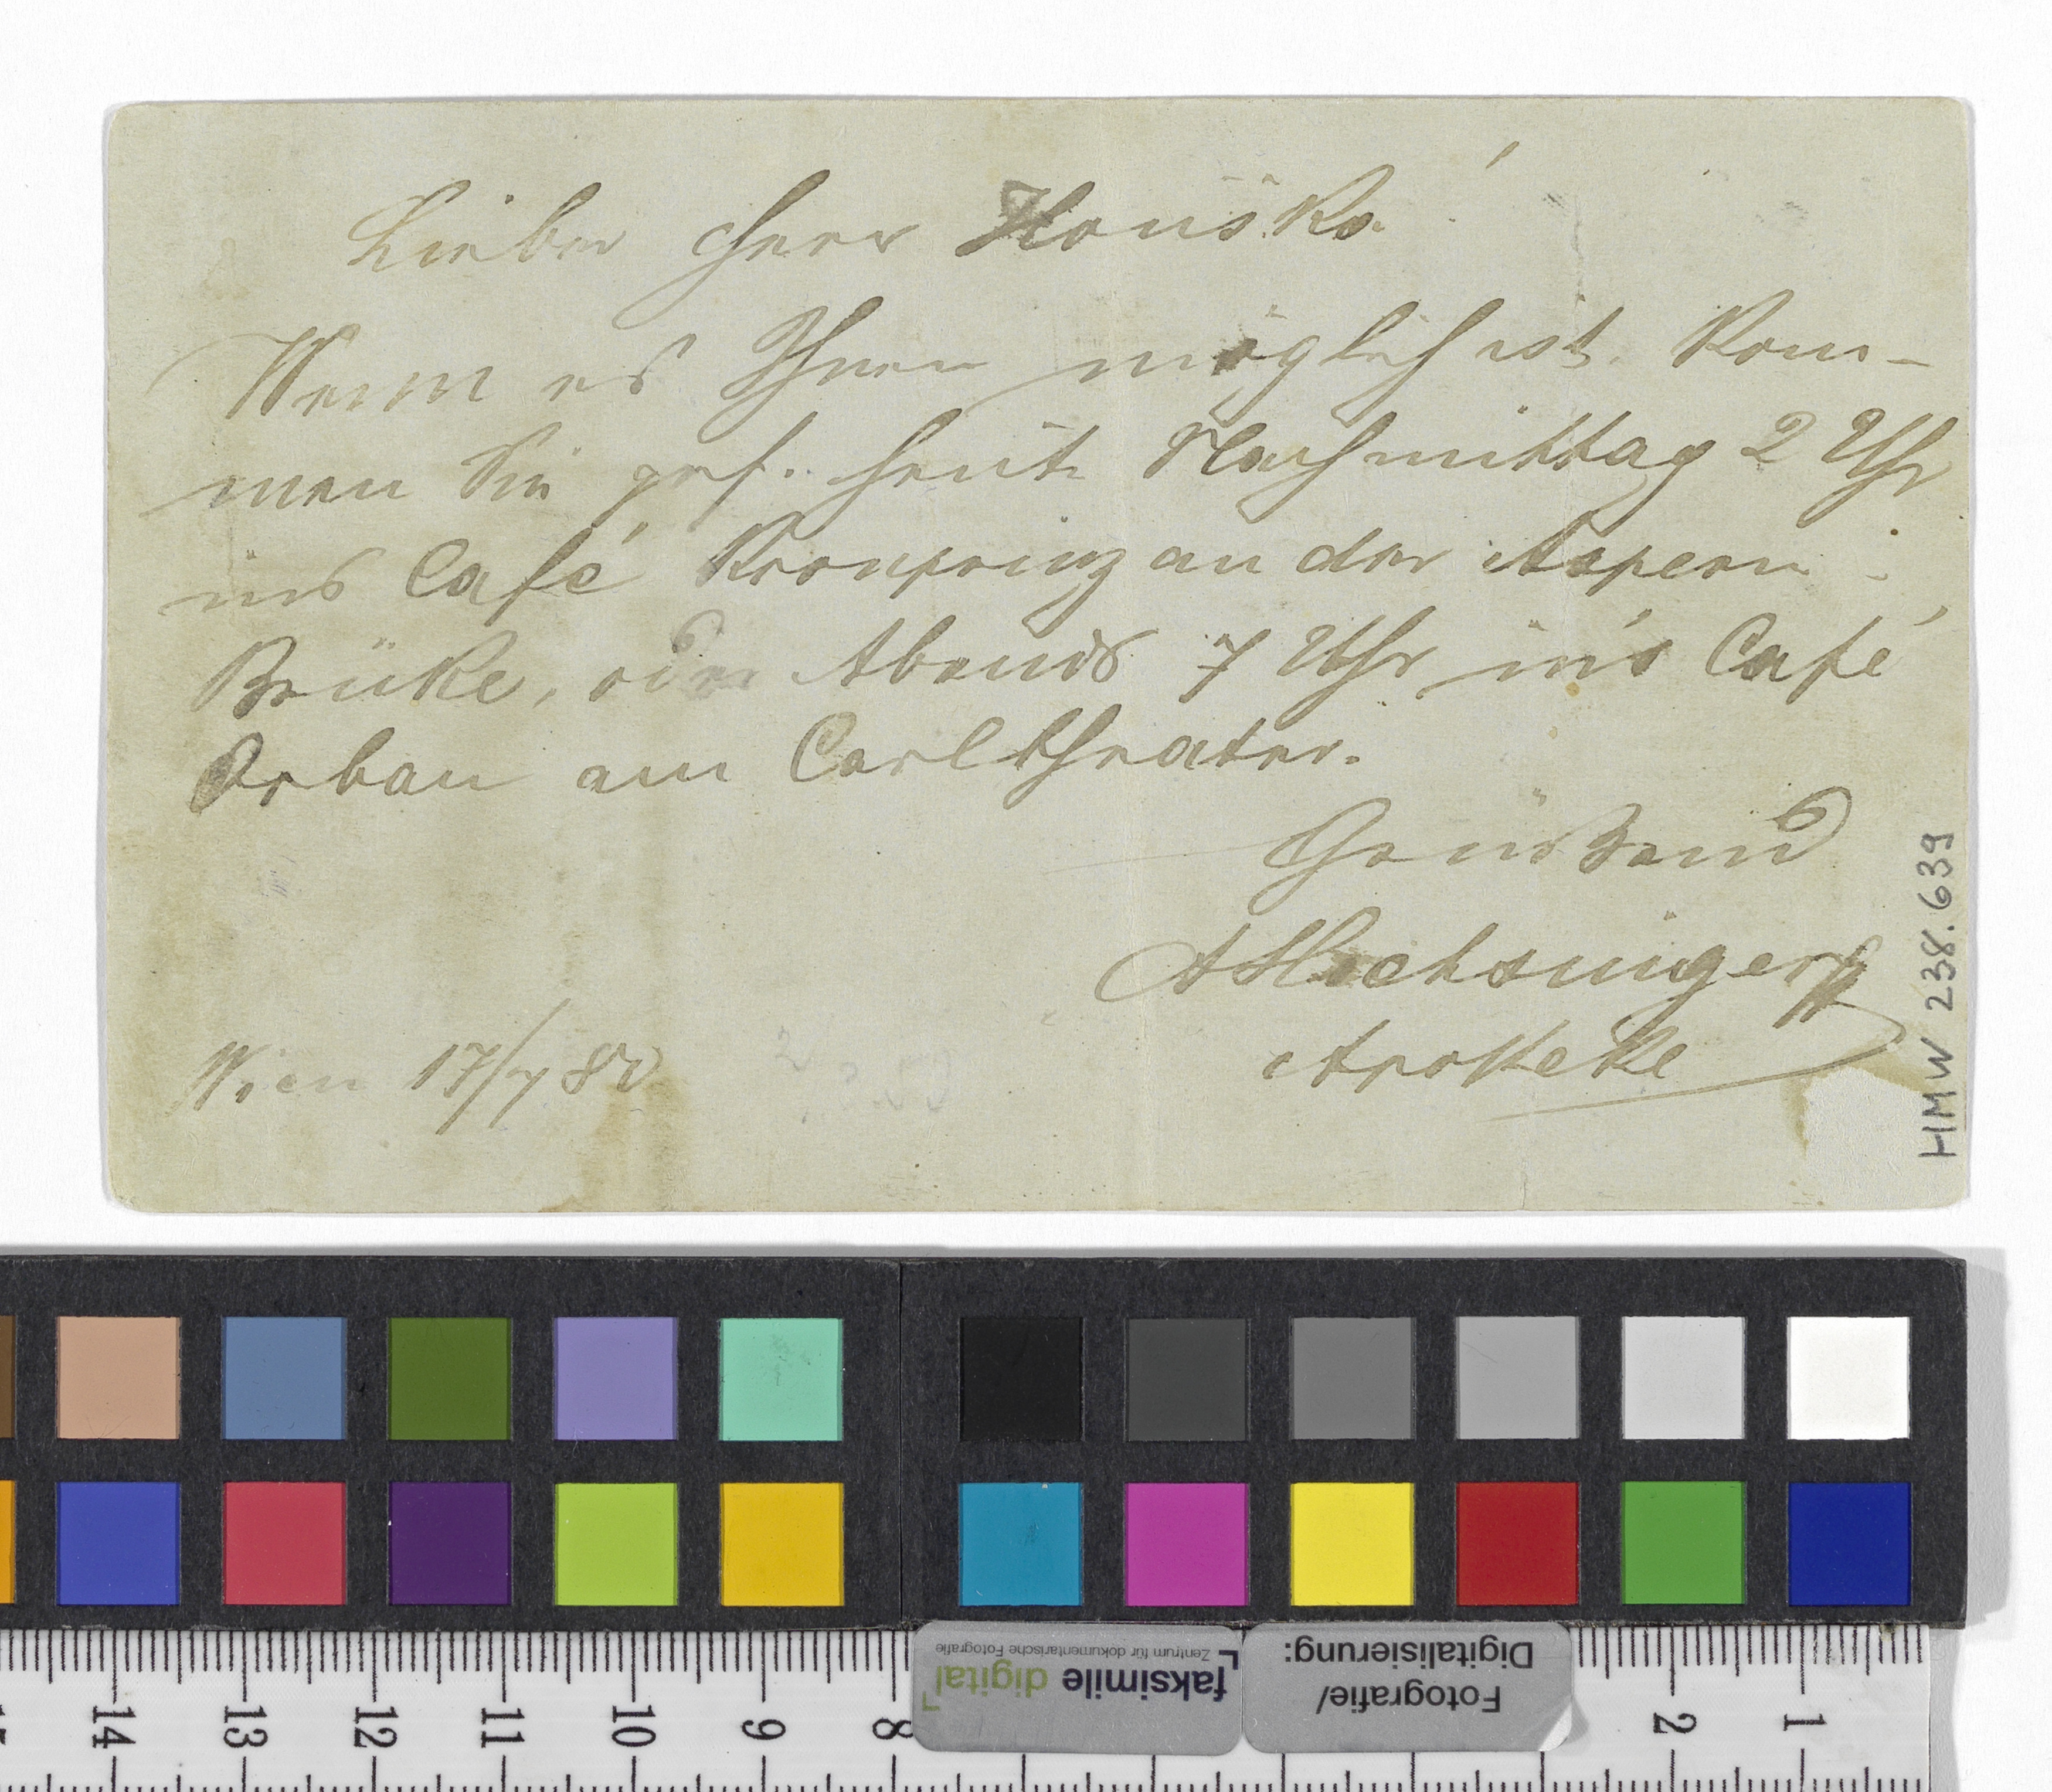 Lieber Herr Houska!
Wenn es Ihnen möglich ist. Kom-
men Sie gef. heute Nachmittag 2 Uhr
ins Café Kronprinz an der Aspern-
Brüke, oder Abends 7 Uhr in's Café
Orban am Carltheater.
Grüßend
Apotheke
Wien 17/7 80
HMW 238.639
faksimile digital
Zentrum für dokumentarische Fotografie
Fotografie/
Digitalisierung:
14 13 12 11 10 9 8 2 1